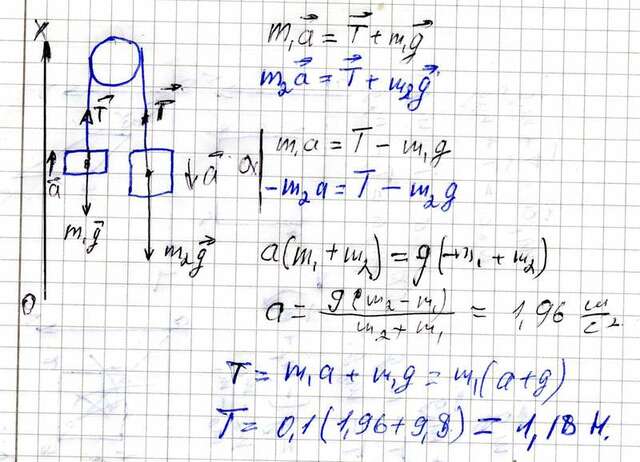 X
m₁a⃗ = T⃗ + m₁g⃗
m₂a⃗ = T⃗ + m₂g⃗
T⃗ T⃗
a⃗ a⃗
m₁g⃗ m₂g⃗
OX | m₁a = T - m₁g
-m₂a = T - m₂g
a(m₁ + m₂) = g(-m₁ + m₂)
O
a = g(m₂ - m₁) / m₂ + m₁ = 1,96 м/с²
T = m₁a + m₁g = m₁(a + g)
T = 0,1(1,96 + 9,8) = 1,18 Н.